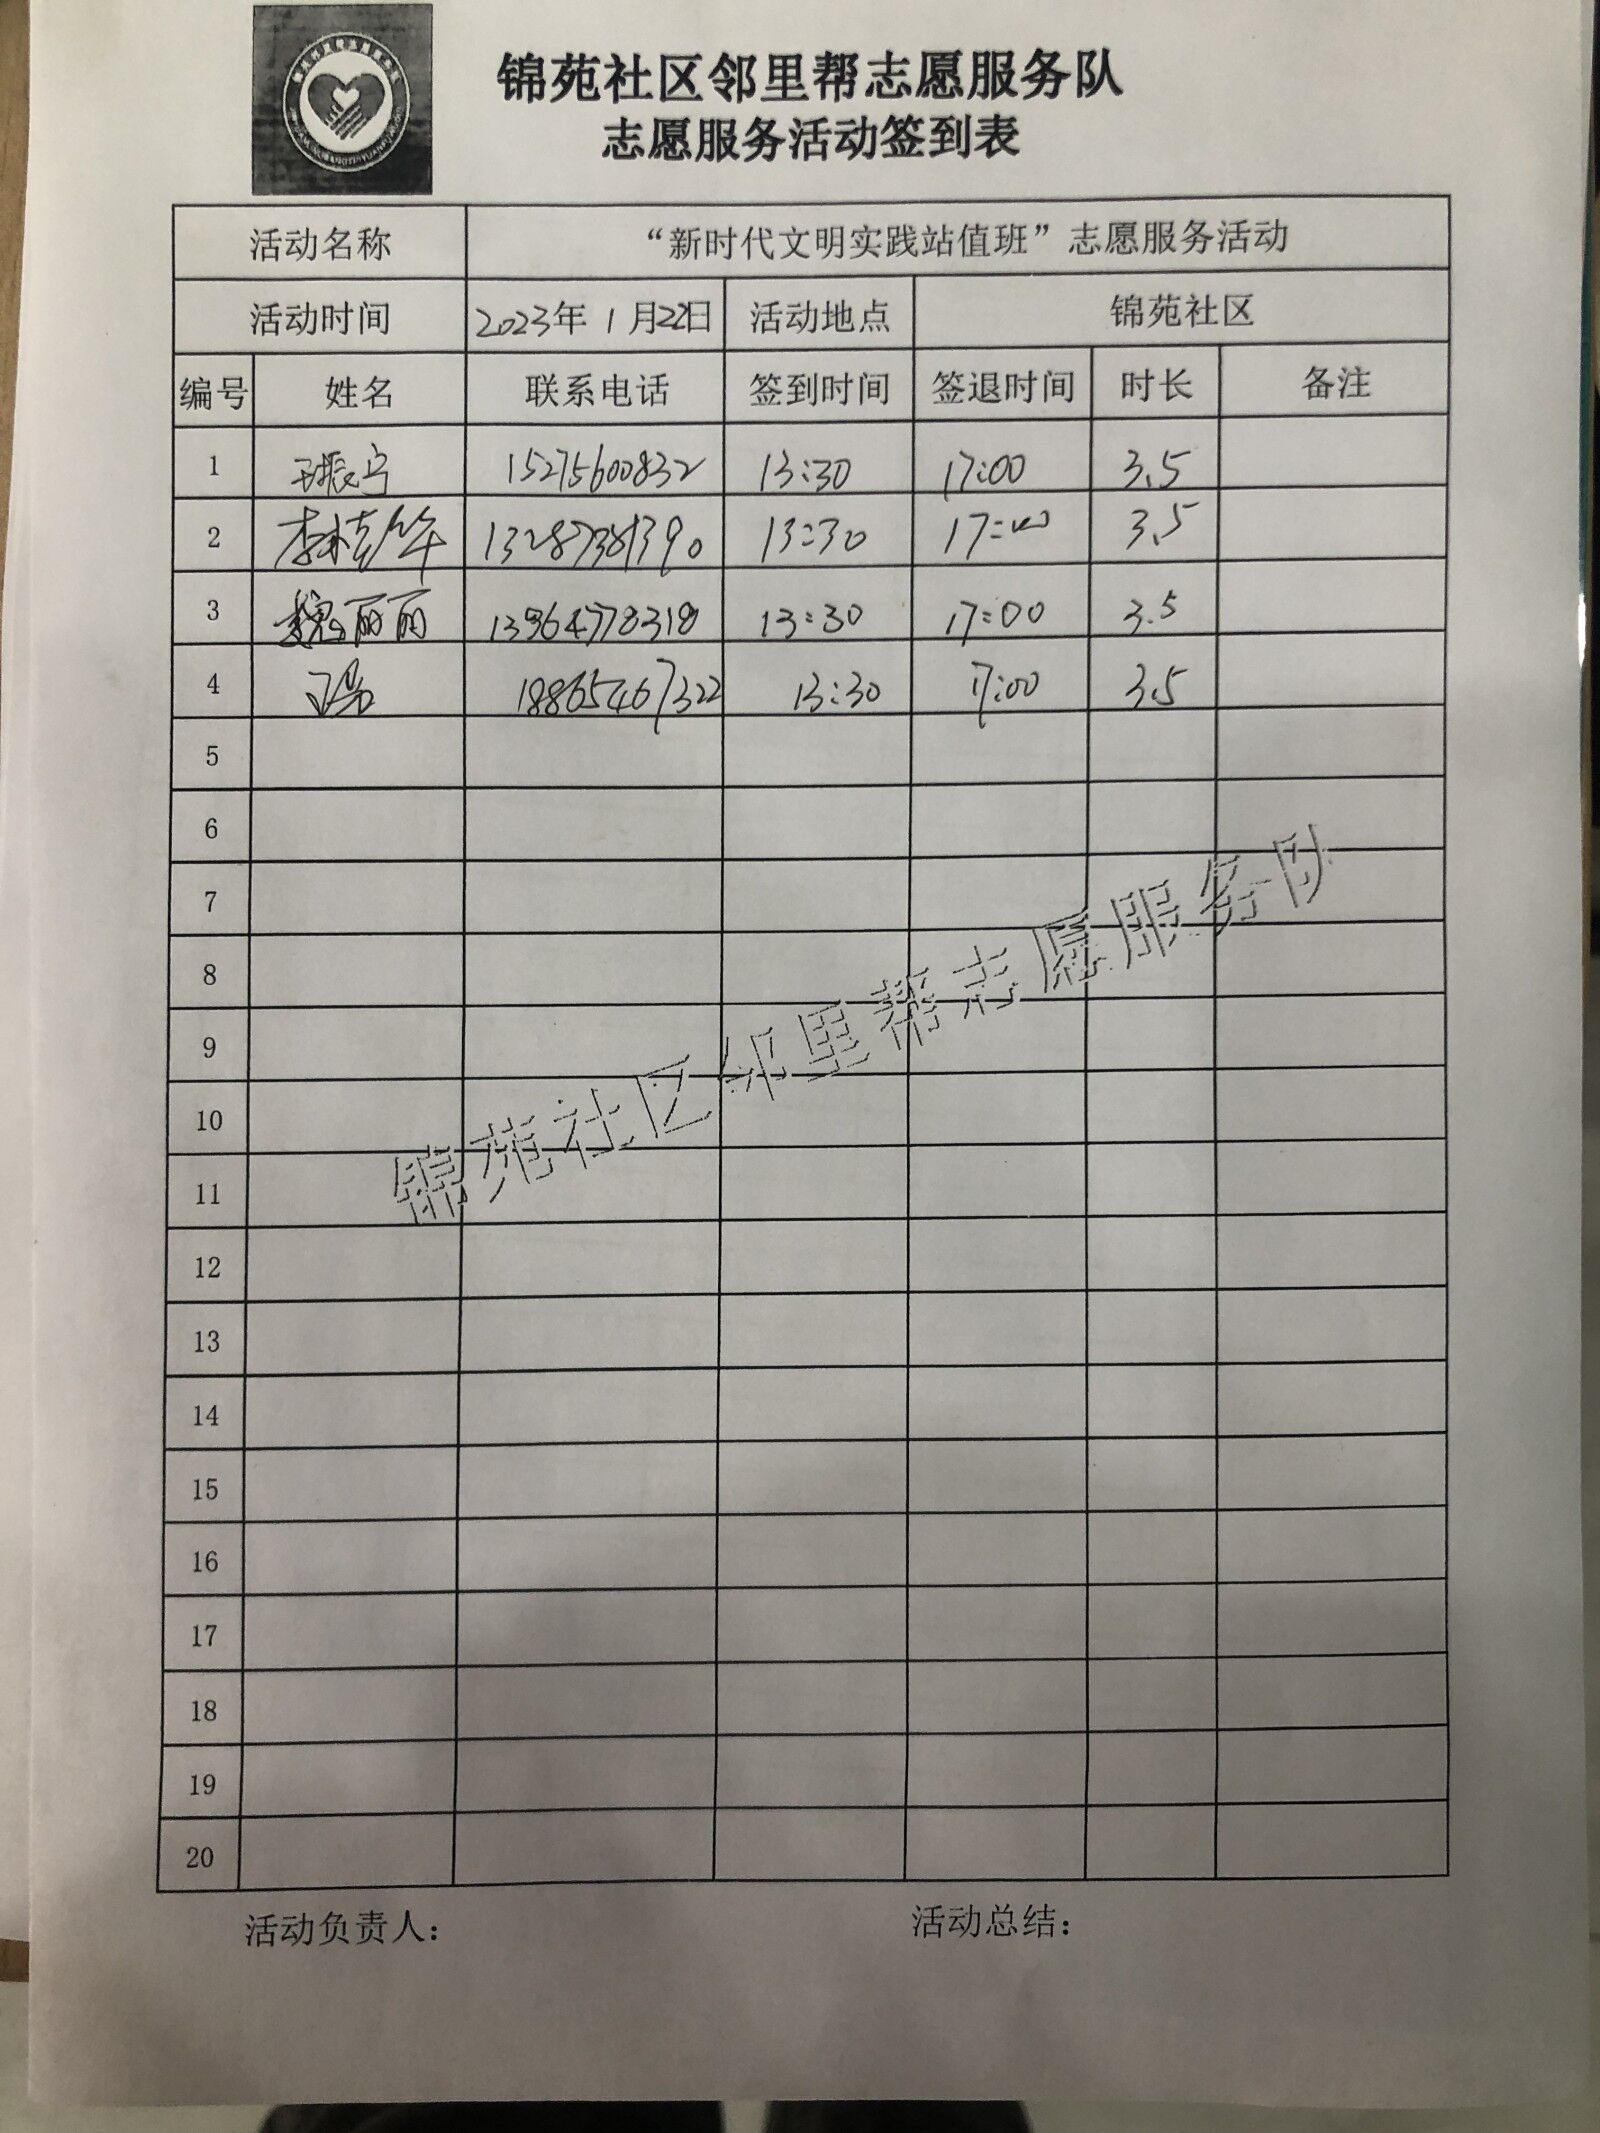 锦苑社区邻里帮志愿服务队
志愿服务活动签到表
活动名称 “新时代文明实践站值班”志愿服务活动
活动时间 2023年 1月22日 活动地点 锦苑社区
编号 姓名 联系电话 签到时间 签退时间 时长 备注
1 王振宁 15275600832 13:30 17:00 3.5
2 李桂华 13287381390 13:30 17:00 3.5
3 魏丽丽 13964778318 13:30 17:00 3.5
4 18865467322 13:30 17:00 3.5
5
6
7
8
9
10
11
12
13
14
15
16
17
18
19
20
锦苑社区邻里帮志愿服务队
活动负责人： 活动总结：